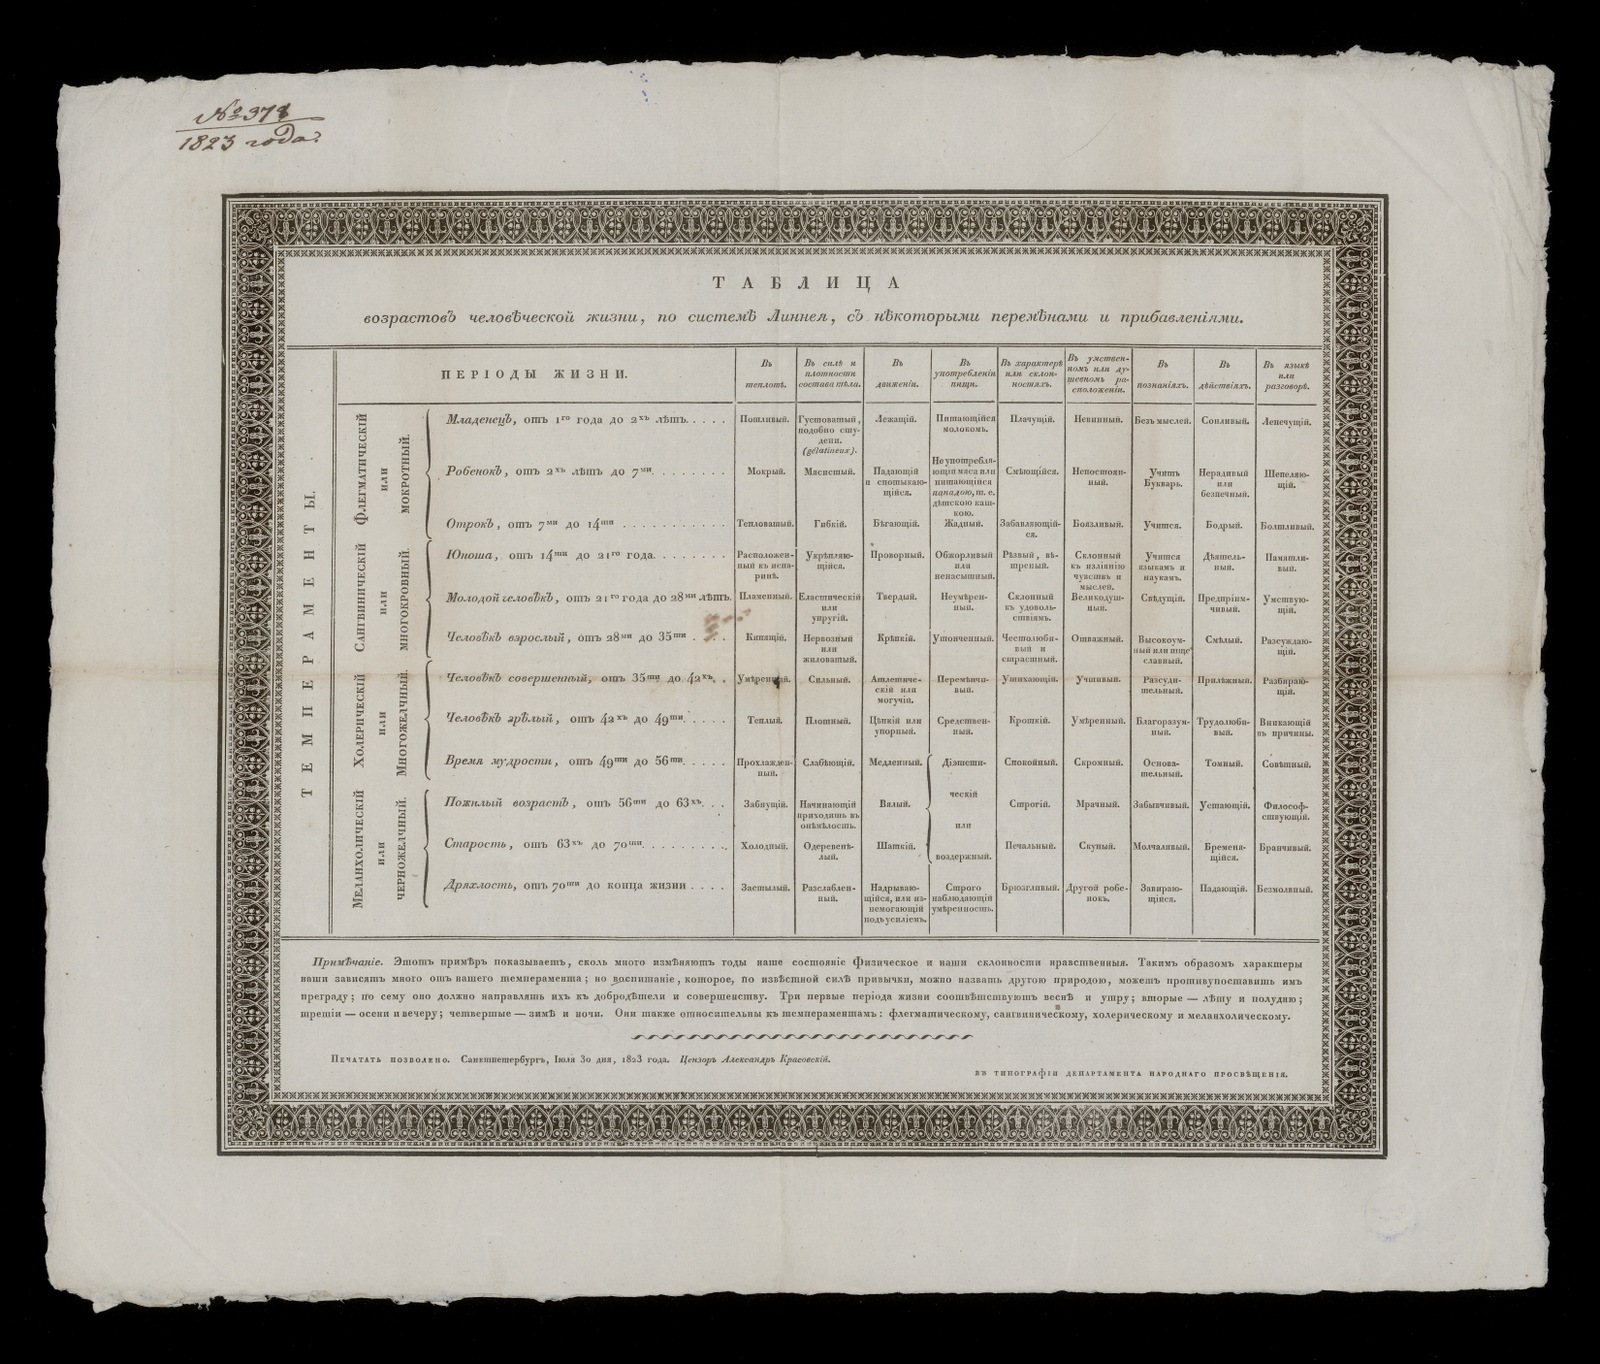 № 378
1823 года.
ТАБЛИЦА
возрастовъ человѣческой жизни, по системѣ Линнея, съ нѣкоторыми перемѣнами и прибавленіями.
ТЕМПЕРАМЕНТЫ.
ПЕРІОДЫ ЖИЗНИ. Въ теплотѣ. Въ силѣ и плотности состава тѣла. Въ движеніи. Въ употребленіи пищи. Въ характерѣ или склонностяхъ. Въ умственномъ или душевномъ расположеніи. Въ познаніяхъ. Въ дѣйствіяхъ. Въ языкѣ или разговорѣ.
Флегматическій или мокротный.
Младенецъ, отъ 1го года до 2хъ лѣтъ. . . . . Потливый. Густоватый, подобно студени. (gélatineux). Лежащій. Питающійся молокомъ. Плачущій. Невинный. Безъ мыслей. Сонливый. Лепечущій.
Робенокъ, отъ 2хъ лѣтъ до 7ми. . . . . . . . Мокрый. Мясистый. Падающій и спотыкающійся. Не употребляющій мяса или питающійся панадою, т. е. дѣтскою кашкою. Смѣющійся. Непостоянный. Учитъ Букварь. Нерадивый или безпечный. Шепеляющій.
Отрокъ, отъ 7ми до 14ти . . . . . . . . . . . Тепловатый. Гибкій. Бѣгающій. Жадный. Забавляющійся. Боязливый. Учится. Бодрый. Болтливый.
Сангвиническій или многокровный.
Юноша, отъ 14ти до 21го года. . . . . . . . Расположенный къ испаринѣ. Укрѣпляющійся. Проворный. Обжорливый или ненасытный. Рѣзвый, вѣтреный. Склонный къ изліянію чувствъ и мыслей. Учится языкамъ и наукамъ. Дѣятельный. Памятливый.
Молодой человѣкъ, отъ 21го года до 28ми лѣтъ. Пламенный. Еластическій или упругій. Твердый. Неумѣренный. Склонный къ удовольствіямъ. Великодушный. Свѣдущій. Предпріимчивый. Умствующій.
Человѣкъ взрослый, отъ 28ми до 35ти . . . . Кипящій. Нервозный или жиловатый. Крѣпкій. Утонченный. Честолюбивый и страстный. Отважный. Высокоумный или тщеславный. Смѣлый. Разсуждающій.
Холерическій или Многожелчный.
Человѣкъ совершенный, отъ 35ти до 42хъ. . Умѣренный. Сильный. Атлетическій или могучій. Перемѣнчивый. Утихающій. Учтивый. Разсудительный. Прилѣжный. Разбирающій.
Человѣкъ зрѣлый, отъ 42хъ до 49ти. . . . . Теплый. Плотный. Цѣпкій или упорный. Средственный. Кроткій. Умѣренный. Благоразумный. Трудолюбивый. Вникающій въ причины.
Время мудрости, отъ 49ти до 56ти. . . . . Прохлажденный. Слабѣющій. Медленный. Діэтетическій или воздержный. Спокойный. Скромный. Основательный. Томный. Совѣтный.
Меланхолическій или черножелчный.
Пожилый возрастъ, отъ 56ти до 63хъ. . . Забнущій. Начинающій приходить въ онѣмѣлость. Вялый. Строгій. Мрачный. Забывчивый. Устающій. Философствующій.
Старость, отъ 63хъ до 70ти. . . . . . . . . . Холодный. Одеревенѣлый. Шаткій. Печальный. Скупый. Молчаливый. Бременящійся. Бранчивый.
Дряхлость, отъ 70ти до конца жизни . . . . Застылый. Разслабленный. Надрывающійся, или изнемогающій подъ усиліемъ. Строго наблюдающій умѣренность. Брюзгливый. Другой робенокъ. Завирающійся. Падающій. Безмолвный.
Примѣчаніе. Этотъ примѣръ показываетъ, сколь много измѣняютъ годы наше состояніе физическое и наши склонности нравственныя. Такимъ образомъ характеры
наши зависятъ много отъ нашего темперамента; но воспитаніе, которое, по извѣстной силѣ привычки, можно назвать другою природою, можетъ противупоставить имъ
преграду; по сему оно должно направлять ихъ къ добродѣтели и совершенству. Три первые періода жизни соотвѣтствуютъ веснѣ и утру; вторые — лѣту и полудню;
третіи — осени и вечеру; четвертые — зимѣ и ночи. Они также относительны къ темпераментамъ: флегматическому, сангвиническому, холерическому и меланхолическому.
Печатать позволено. Санктпетербургъ, Іюля 30 дня, 1823 года. Цензоръ Александръ Красовскій.
въ типографіи департамента народнаго просвѣщенія.